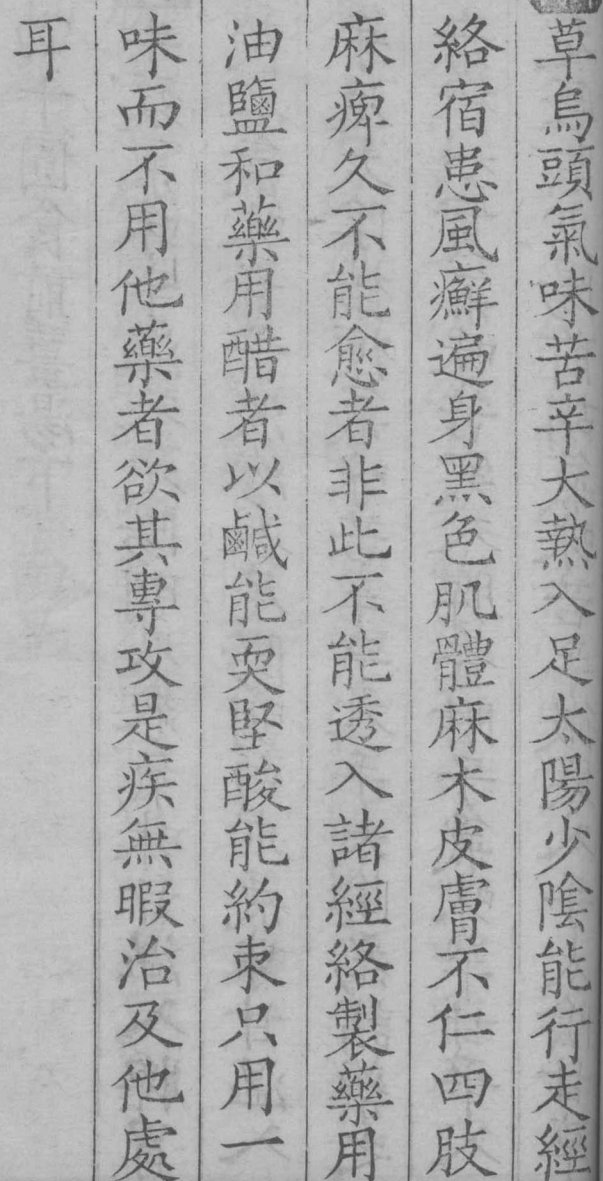 草烏頭氣味苦辛大熱入足太陽少隂能行走經
絡宿患風癬遍身黑色肌體麻木皮膚不仁四肢
麻痺久不能愈者非此不能透入諸經絡製藥用
油鹽和藥用醋者以鹹能耎堅酸能約束只用一
味而不用他藥者欲其專攻是疾無暇治及他處
耳